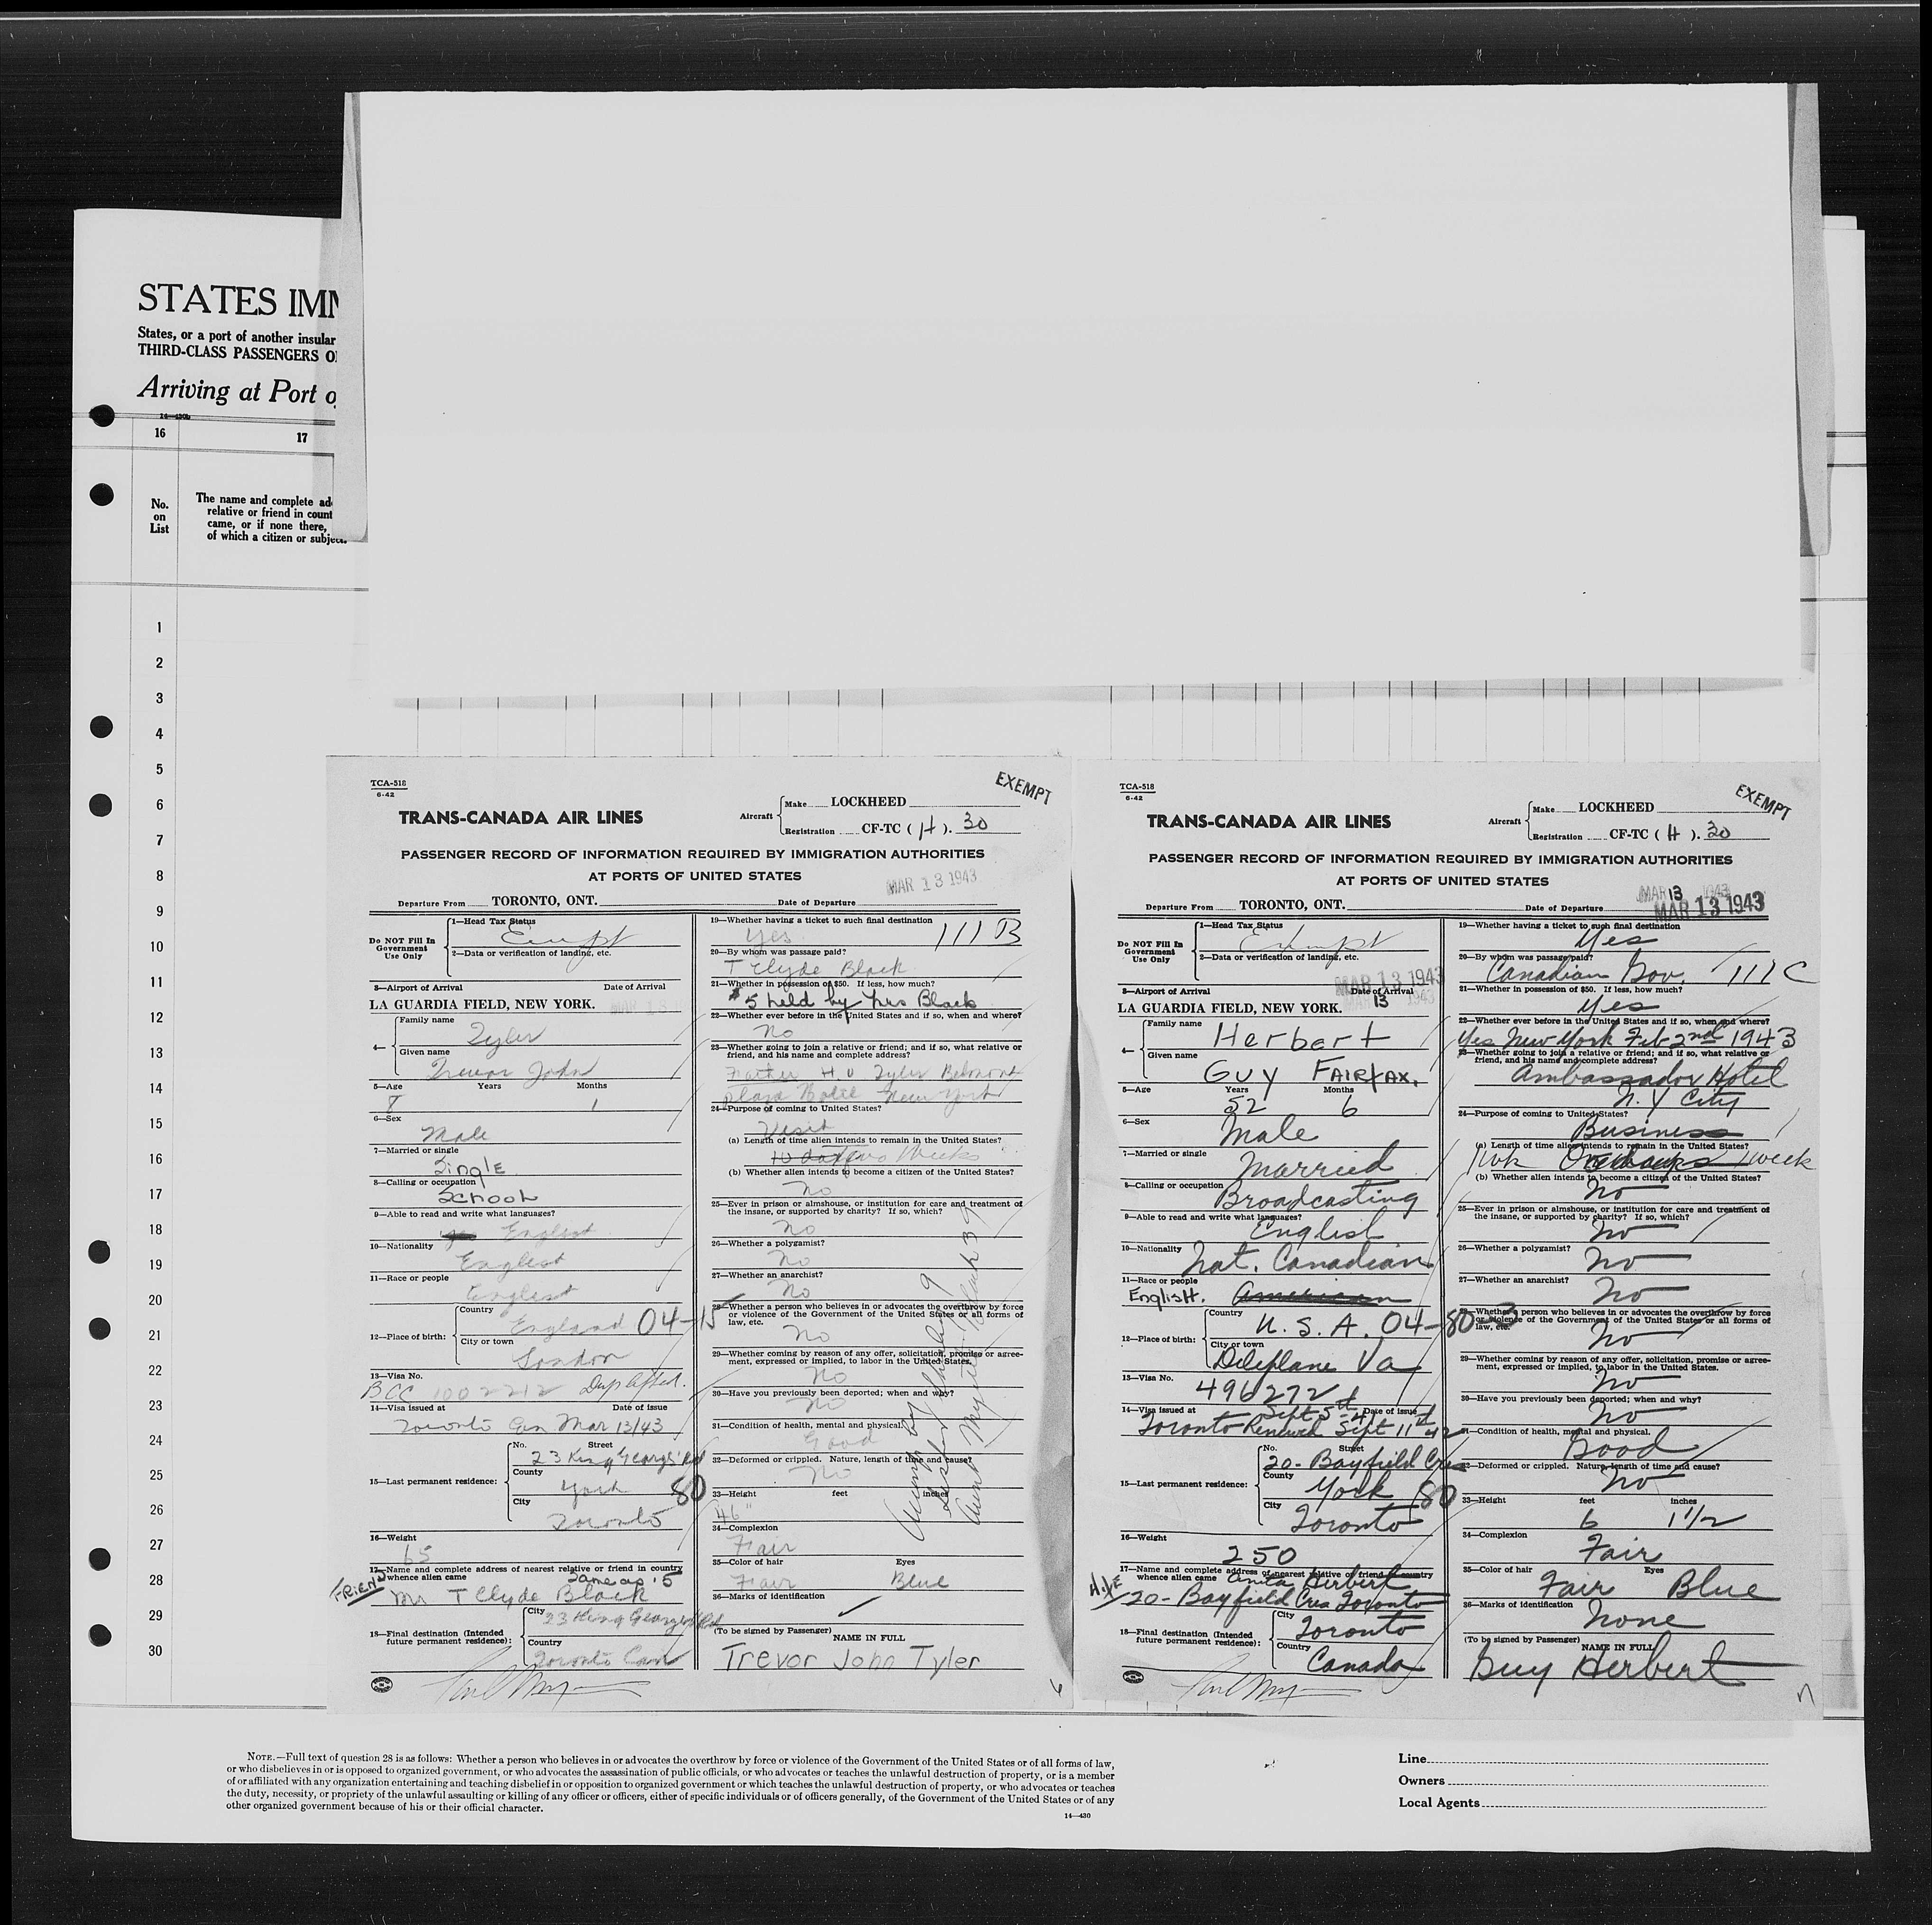 STATES IMM
States, or a port of another insular
THIRD-CLASS PASSENGERS O
Arriving at Port o
14—430b
16 17
No. on List
The name and complete ad
relative or friend in count
came, or if none there,
of which a citizen or subject
1
2
3
4
5
6
7
8
9
10
11
12
13
14
15
16
17
18
19
20
21
22
23
24
25
26
27
28
29
30
TCA-518
6-42
EXEMPT
TRANS-CANADA AIR LINES
Aircraft Make LOCKHEED
Registration CF-TC (H). 30
PASSENGER RECORD OF INFORMATION REQUIRED BY IMMIGRATION AUTHORITIES
AT PORTS OF UNITED STATES
MAR 13 1943
Departure From TORONTO, ONT. Date of Departure
Do NOT Fill In Government Use Only
1—Head Tax Status
Exempt
2—Data or verification of landing, etc.
3—Airport of Arrival Date of Arrival
LA GUARDIA FIELD, NEW YORK.
4— Family name
Tyler
Given name
Trevor John
5—Age Years Months
8 1
6—Sex
Male
7—Married or single
Single
8—Calling or occupation
School
9—Able to read and write what languages?
English
10—Nationality
English
11—Race or people
English
12—Place of birth: Country
England 04-15
City or town
London
13—Visa No.
BCC 1002212
14—Visa issued at Date of issue
Toronto Can Mar 13/43
15—Last permanent residence: No. Street
23 King Georges Rd
County
York 80
City
Toronto
16—Weight
65
17—Name and complete address of nearest relative or friend in country
whence alien came Same as 15
FRIEND Mr T Clyde Black
18—Final destination (Intended future permanent residence):
City 23 King Georges Rd
Country
Toronto Can
19—Whether having a ticket to such final destination
Yes 111 B
20—By whom was passage paid?
T Clyde Black
21—Whether in possession of $50. If less, how much?
$5 held by Mrs Black
22—Whether ever before in the United States and if so, when and where?
No
23—Whether going to join a relative or friend; and if so, what relative or
friend, and his name and complete address?
Father H U Tyler Belmont
Plaza Hotel New York
24—Purpose of coming to United States?
Visit
(a) Length of time alien intends to remain in the United States?
10 days Two Weeks
(b) Whether alien intends to become a citizen of the United States?
No
25—Ever in prison or almshouse, or institution for care and treatment of
the insane, or supported by charity? If so, which?
No
26—Whether a polygamist?
No
27—Whether an anarchist?
No
28—Whether a person who believes in or advocates the overthrow by force
or violence of the Government of the United States or all forms of
law, etc.
No
29—Whether coming by reason of any offer, solicitation, promise or agree-
ment, expressed or implied, to labor in the United States.
No
30—Have you previously been deported; when and why?
No
31—Condition of health, mental and physical.
Good
32—Deformed or crippled. Nature, length of time and cause?
No
33—Height feet inches
46"
34—Complexion
Fair
35—Color of hair Eyes
Fair Blue
36—Marks of identification
(To be signed by Passenger) NAME IN FULL
Trevor John Tyler
TCA-518
6-42
EXEMPT
TRANS-CANADA AIR LINES
Aircraft Make LOCKHEED
Registration CF-TC (H). 30
PASSENGER RECORD OF INFORMATION REQUIRED BY IMMIGRATION AUTHORITIES
AT PORTS OF UNITED STATES
MAR 13 1943
MAR 13 1943
Departure From TORONTO, ONT. Date of Departure
Do NOT Fill In Government Use Only
1—Head Tax Status
Exempt
2—Data or verification of landing, etc.
MAR 13 1943
3—Airport of Arrival Date of Arrival
LA GUARDIA FIELD, NEW YORK. MAR 13 1943
4— Family name
Herbert
Given name
GUY FAIRFAX.
5—Age Years Months
52 6
6—Sex
Male
7—Married or single
Married
8—Calling or occupation
Broadcasting
9—Able to read and write what languages?
English
10—Nationality
Nat. Canadian
11—Race or people
English. American
12—Place of birth: Country
U.S.A. 04-80-3
City or town
Deleplane Va
13—Visa No.
496272
14—Visa issued at Date of issue
Sept 5th 41
Toronto Renewed Sept 11th 42
15—Last permanent residence: No. Street
20- Bayfield Cres
County
York 80
City
Toronto
16—Weight
250
17—Name and complete address of nearest relative or friend in country
whence alien came Anita Herbert
20- Bayfield Cres Toronto
18—Final destination (Intended future permanent residence):
City
Toronto
Country
Canada
19—Whether having a ticket to such final destination
Yes
20—By whom was passage paid?
Canadian Gov. 111 C
21—Whether in possession of $50. If less, how much?
Yes
22—Whether ever before in the United States and if so, when and where?
Yes New York Feb 2nd 1943
23—Whether going to join a relative or friend; and if so, what relative or
friend, and his name and complete address?
Ambassador Hotel
N.Y City
24—Purpose of coming to United States?
Business
(a) Length of time alien intends to remain in the United States?
1 wk 1 week
(b) Whether alien intends to become a citizen of the United States?
No
25—Ever in prison or almshouse, or institution for care and treatment of
the insane, or supported by charity? If so, which?
No
26—Whether a polygamist?
No
27—Whether an anarchist?
No
28—Whether a person who believes in or advocates the overthrow by force
or violence of the Government of the United States or all forms of
law, etc.
No
29—Whether coming by reason of any offer, solicitation, promise or agree-
ment, expressed or implied, to labor in the United States.
No
30—Have you previously been deported; when and why?
No
31—Condition of health, mental and physical.
Good
32—Deformed or crippled. Nature, length of time and cause?
No
33—Height feet inches
6 1 1/2
34—Complexion
Fair
35—Color of hair Eyes
Fair Blue
36—Marks of identification
None
(To be signed by Passenger) NAME IN FULL
Guy Herbert
NOTE.—Full text of question 28 is as follows: Whether a person who believes in or advocates the overthrow by force or violence of the Government of the United States or of all forms of law,
or who disbelieves in or is opposed to organized government, or who advocates the assassination of public officials, or who advocates or teaches the unlawful destruction of property, or is a member
of or affiliated with any organization entertaining and teaching disbelief in or opposition to organized government or which teaches the unlawful destruction of property, or who advocates or teaches
the duty, necessity, or propriety of the unlawful assaulting or killing of any officer or officers, either of specific individuals or of officers generally, of the Government of the United States or of any
other organized government because of his or their official character.
14—430
Line
Owners
Local Agents